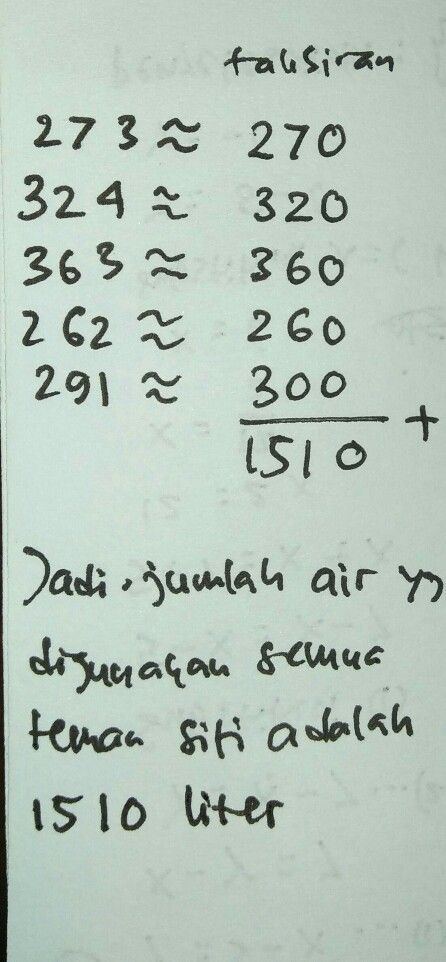 taksiran
273 ≈ 270
324 ≈ 320
363 ≈ 360
262 ≈ 260
291 ≈ 300
+
1510
Jadi, jumlah air yg
digunakan semua
teman siti adalah
1510 liter